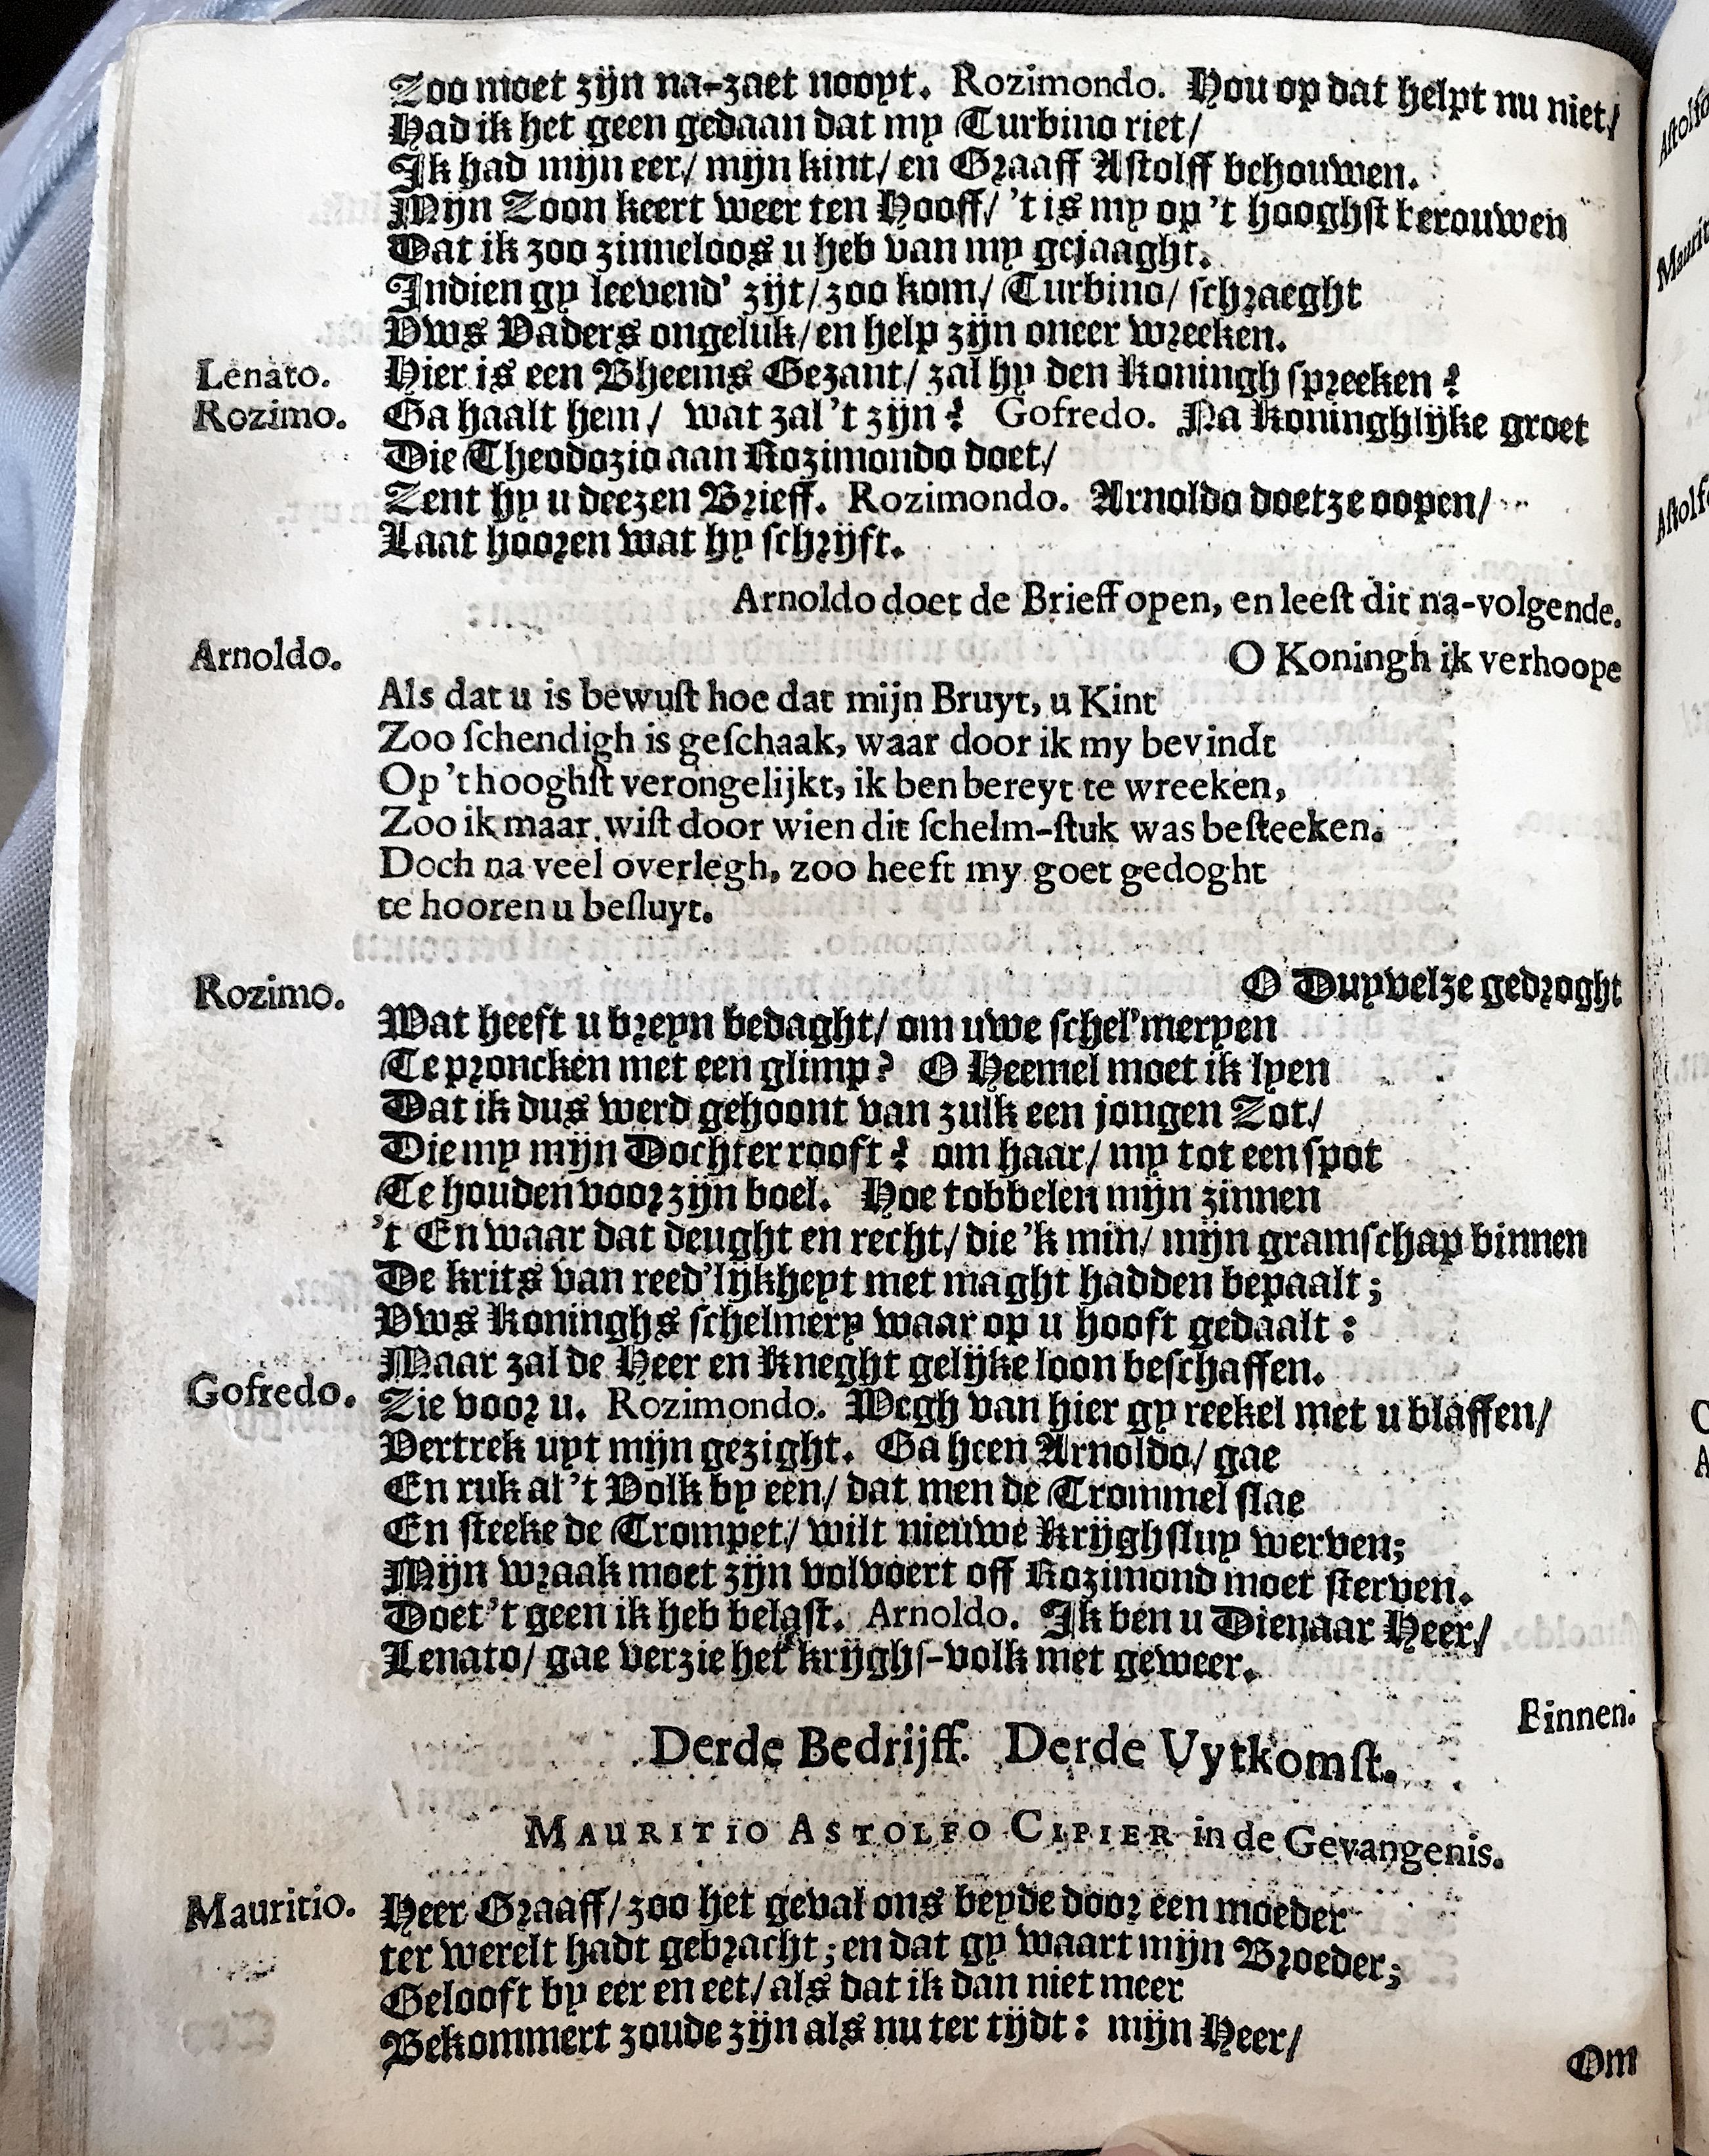 Zoo moet zijn na-zaet noopt. Rozimondo. Hou op dat helpt nu niet/
Had ik het geen gedaan dat my Turbino riet/
Ik had mijn eer/ mijn kint/ en Graaff Astolff behouwen.
Mijn Zoon keert weer ten Hooff/ 't is my op 't hooghst berouwen
Dat ik zoo zinneloos u heb van my gejaaght.
Indien gy leevend' zijt/ zoo kom/ Turbino/ schraeght
Vws Vaders ongeluk/ en help zijn oneer wreeken.
Lenato. Hier is een Bheems Gezant/ zal hy den Koningh spreeken?
Rozimo. Ga haalt hem/ wat zal 't zijn? Gofredo. Na Koninghlijke groet
Die Theodozio aan Rozimondo doet/
Zent hy u deezen Brieff. Rozimondo. Arnoldo doetze oopen/
Laat hooren wat hy schrijft.
Arnoldo doet de Brieff open, en leeſt dit na-volgende.
Arnoldo. O Koningh ik verhoope
Als dat u is bewuſt hoe dat mijn Bruyt, u Kint
Zoo ſchendigh is geſchaak, waar door ik my bevindt
Op 't hooghſt verongelijkt, ik ben bereyt te wreeken,
Zoo ik maar wiſt door wien dit ſchelm-ſtuk was beſteeken.
Doch na veel overlegh, zoo heeft my goet gedoght
te hooren u beſluyt.
Rozimo. O Duyvelze gedroght
Wat heeft u breyn bedaght/ om uwe schel'meryen
Te proncken met een glimp? O Heemel moet ik lyen
Dat ik dus werd gehoont van zulk een jongen Zot/
Die my mijn Dochter rooft? om haar/ my tot een spot
Te houden voor zijn boel. Hoe tobbelen mijn zinnen
't En waar dat deught en recht/ die 'k min/ mijn gramschap binnen
De krits van reed'lijkheyt met maght hadden bepaalt;
Vws Koninghs schelmery waar op u hooft gedaalt:
Maar zal de Heer en Kneght gelijke loon beschaffen.
Gofredo. Zie voor u. Rozimondo. Wegh van hier gy reekel met u blaffen/
Vertrek uyt mijn gezight. Ga heen Arnoldo/ gae
En ruk al 't Volk by een/ dat men de Trommel slae
En steeke de Trompet/ wilt nieuwe Krijghsluy werven;
Mijn wraak moet zijn volvoert off Rozimond moet sterven.
Doet 't geen ik heb belast. Arnoldo. Ik ben u Dienaar Heer/
Lenato/ gae verzie het krijghs-volk met geweer.
Binnen.
Derde Bedrijff. Derde Uytkomſt.
MAURITIO ASTOLFO CIPIER in de Gevangenis.
Mauritio. Heer Graaff/ zoo het geval ons beyde door een moeder
ter werelt hadt gebracht; en dat gy waart mijn Broeder;
Gelooft by eer en eet/ als dat ik dan niet meer
Bekommert zoude zijn als nu ter tijdt: mijn Heer/
Om